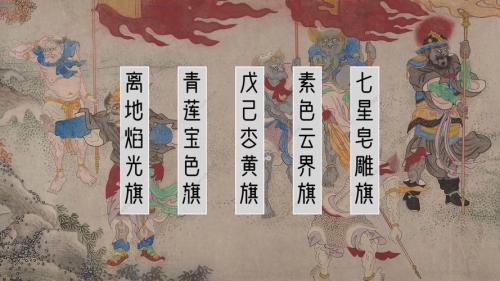 七星皂雕旗
素色云界旗
戊己杏黄旗
青莲宝色旗
离地焰光旗